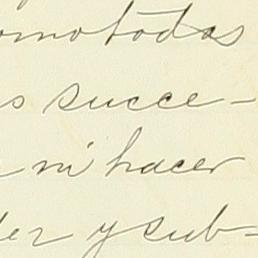 como todas
s succe-
ni hacer
der y sub-